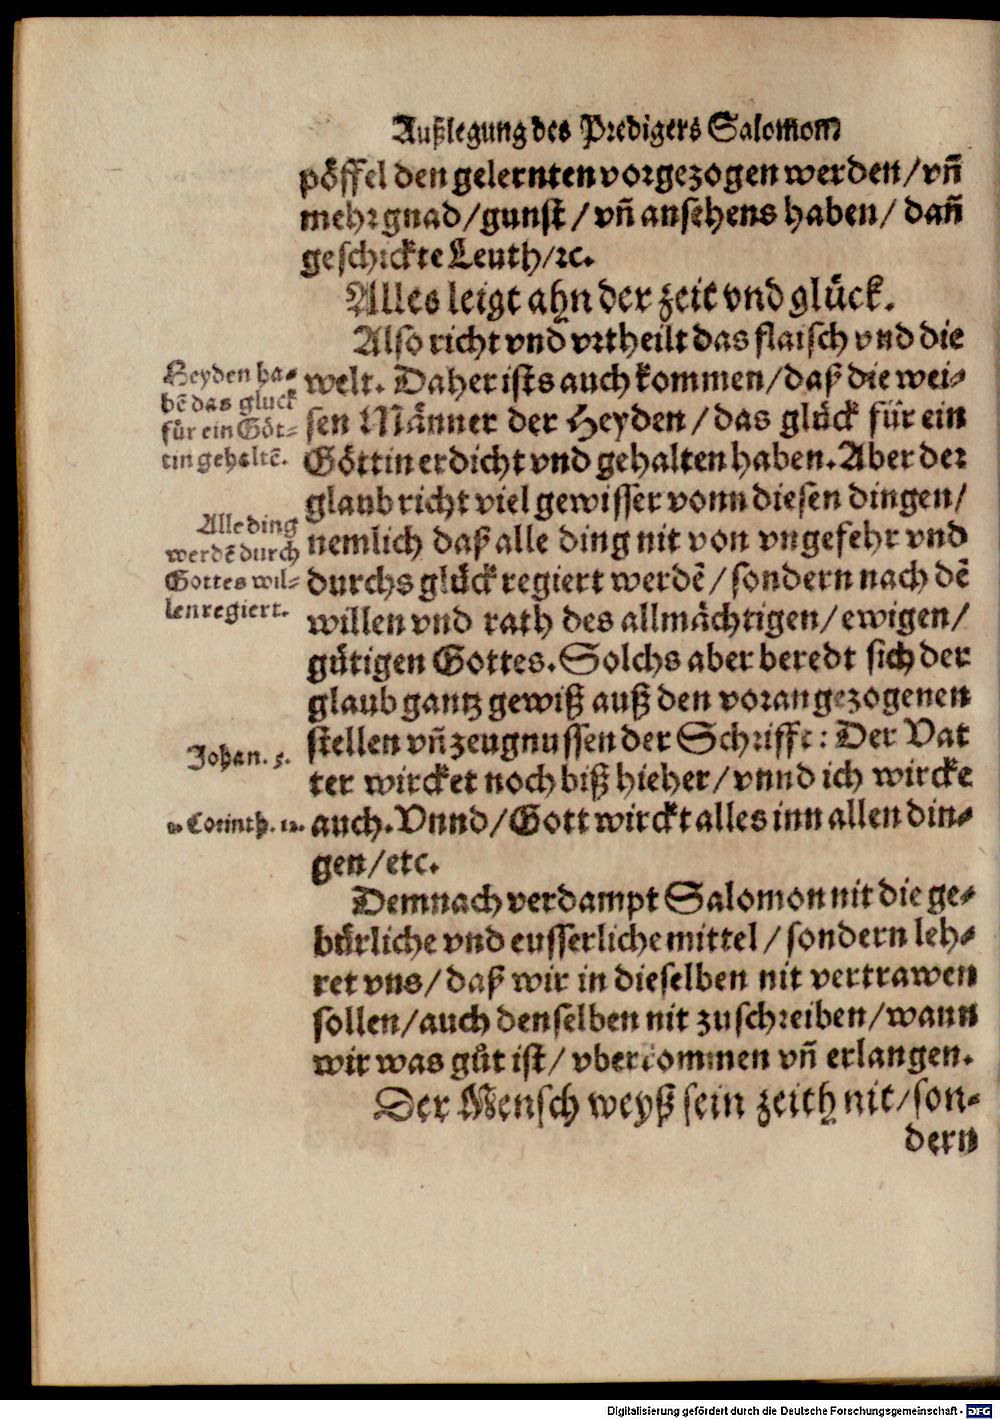 Außlegung des Predigers Salomom
pöffel den gelernten vorgezogen werden/vñ
mehr gnad/gunst/vñ ansehens haben/dañ
geschickte Leuth/ꝛc.
Alles leigt ahn der zeit vnd glück.
Also richt vnd vrtheilt das flaisch vnd die
Heyden ha⸗
bẽ das gluck
für ein Göt⸗
tin gehaltẽ.
welt. Daher ists auch kommen/daß die wei⸗
sen Männer der Heyden/das glück für ein
Göttin erdicht vnd gehalten haben. Aber der
glaub richt viel gewisser vonn diesen dingen/
Alle ding
werdẽ durch
Gottes wil⸗
len regiert.
nemlich daß alle ding nit von vngefehr vnd
durchs glück regiert werdẽ/sondern nach dẽ
willen vnd rath des allmächtigen/ewigen/
gütigen Gottes. Solchs aber beredt sich der
glaub gantz gewiß auß den vorangezogenen
stellen vñ zeugnussen der Schrifft: Der Vat
Johan. 5.
ter wircket noch biß hieher/vnnd ich wircke
1. Corinth. 12.
auch. Vnnd/Gott wirckt alles inn allen din⸗
gen/etc.
Demnach verdampt Salomon nit die ge⸗
bürliche vnd eusserliche mittel/sondern leh⸗
ret vns/daß wir in dieselben nit vertrawen
sollen/auch denselben nit zuschreiben/wann
wir was gůt ist/vberkommen vñ erlangen.
Der Mensch weyß sein zeith nit/son⸗
dern
Digitalisierung gefördert durch die Deutsche Forschungsgemeinschaft - DFG